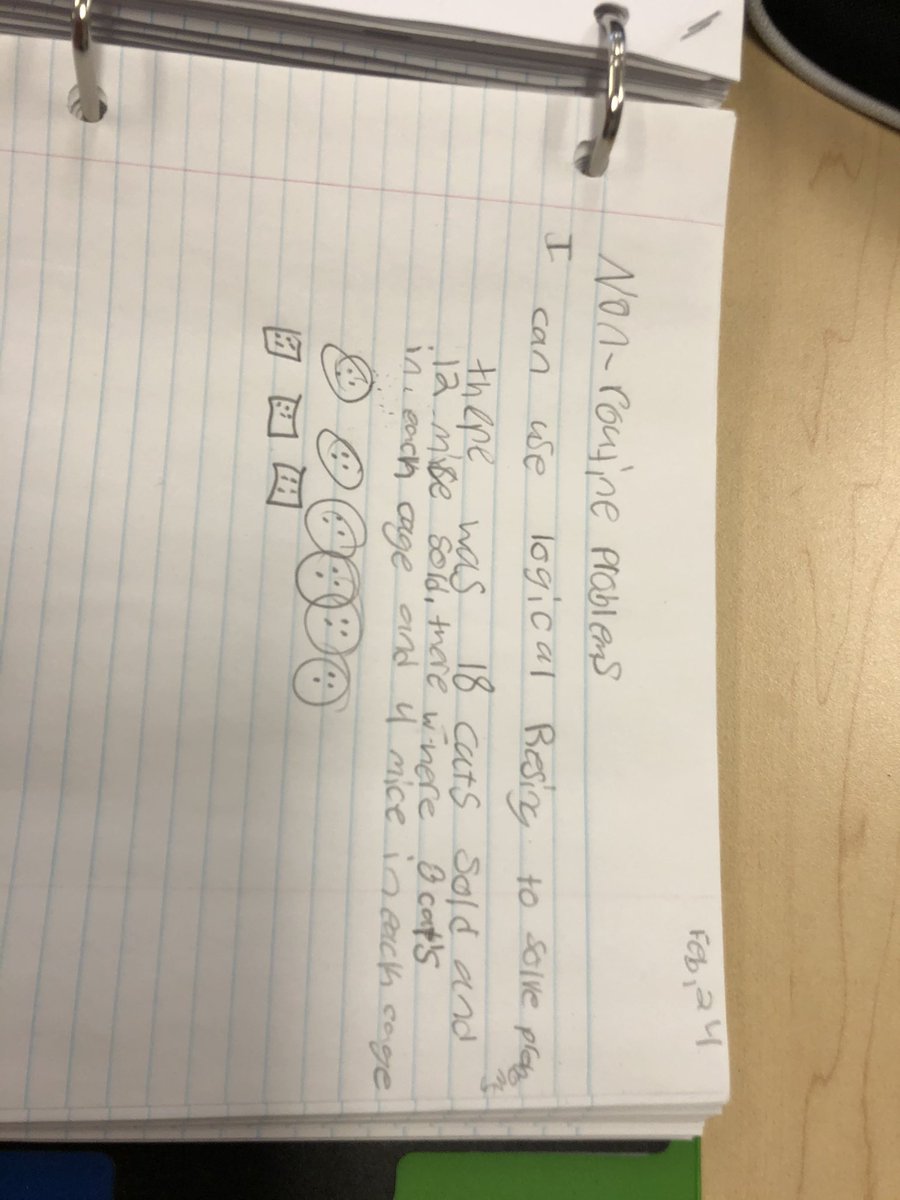 Feb, 24
Non-routine problems
I can use logical Resing to solve prob
there was 18 cats sold and
12 mise sold, there where 3 cats
in each cage and 4 mice in each cage